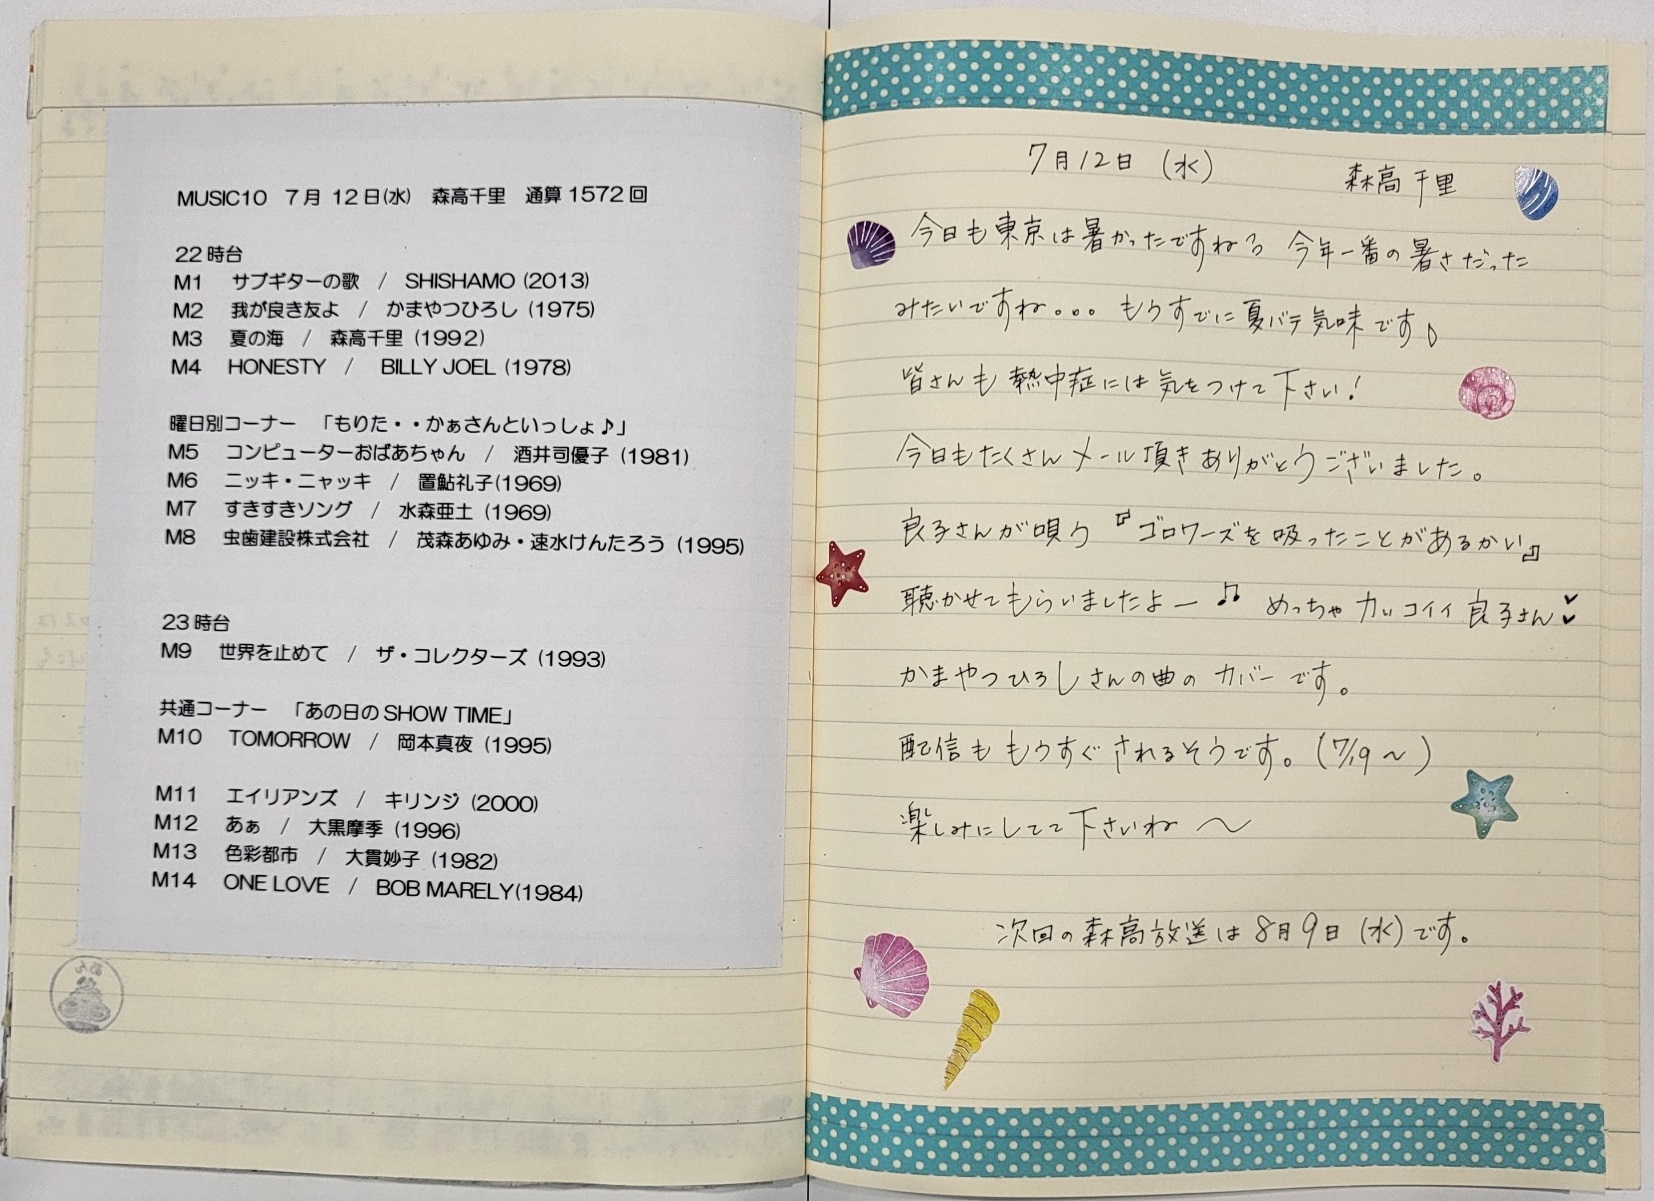 MUSIC10 7月 12日(水) 森高千里 通算1572回
22時台
M1 サブギターの歌 / SHISHAMO (2013)
M2 我が良き友よ / かまやつひろし (1975)
M3 夏の海 / 森高千里 (1992)
M4 HONESTY / BILLY JOEL (1978)
曜日別コーナー 「もりた・・かぁさんといっしょ♪」
M5 コンピューターおばあちゃん / 酒井司優子 (1981)
M6 ニッキ・ニャッキ / 置鮎礼子(1969)
M7 すきすきソング / 水森亜土 (1969)
M8 虫歯建設株式会社 / 茂森あゆみ・速水けんたろう (1995)
23時台
M9 世界を止めて / ザ・コレクターズ (1993)
共通コーナー 「あの日のSHOW TIME」
M10 TOMORROW / 岡本真夜 (1995)
M11 エイリアンズ / キリンジ (2000)
M12 あぁ / 大黒摩季 (1996)
M13 色彩都市 / 大貫妙子 (1982)
M14 ONE LOVE / BOB MARELY(1984)
7月12日 (水) 森高千里
今日も東京は暑かったですねる 今年一番の暑さだった
みたいですね。。。 もうすでに夏バテ気味です
皆さんも熱中症には気をつけて下さい!
今日もたくさんメール頂きありがとうございました。
良子さんが唄う『ゴロワーズを吸ったことがあるかい』
聴かせてもらいましたよー♫ めっちゃカッコイイ良子さん
かまやつひろしさんの曲のカバーです。
配信ももうすぐされるそうです。(7/19〜)
楽しみにしてて下さいね〜
次回の森高放送は8月9日(水)です。